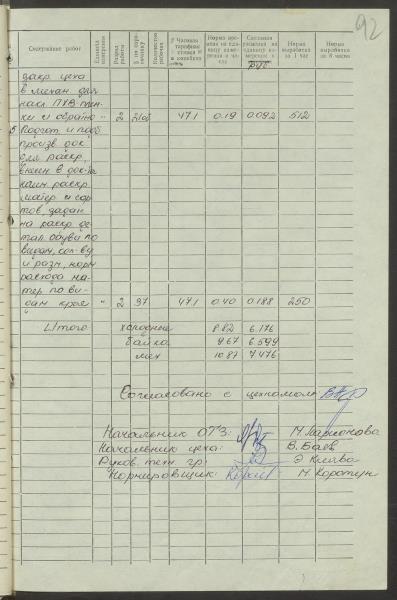 92
Содержание работ
Единица измерения
Разряд работы
§ по справочнику
Количество рабочих
Часовая тарифная ставка и копейках
Норма времени на единицу измерения в часах
Сдельная расценка на единицу измерения в
руб
Норма выработки за 1 час
Норма выработки за 8 часов
закр. цеха
в механ для
накл ПХВ плен-
ки и обратно " 2 47,1 0.19 0.092 512
5 Подгот и подб
произв док
для раскр,
в док-ты
раскр
матер и сор
тов, задан
на раскр де-
тал. обуви по
видам, кол-ву
и разм, норм
расхода ма-
тер. по ви-
дам кроя " 2 97 47,1 0.40 0.188 250
Итого холодные 8.82 6.176
байка 9.67 6.599
мех 10.87 7.476
Согласовано с цехкомом
Начальник ОТЗ: М. Ларионова
Начальник цеха: В. Баев
Руков. техн. гр:
Нормировщик: М. Коротун